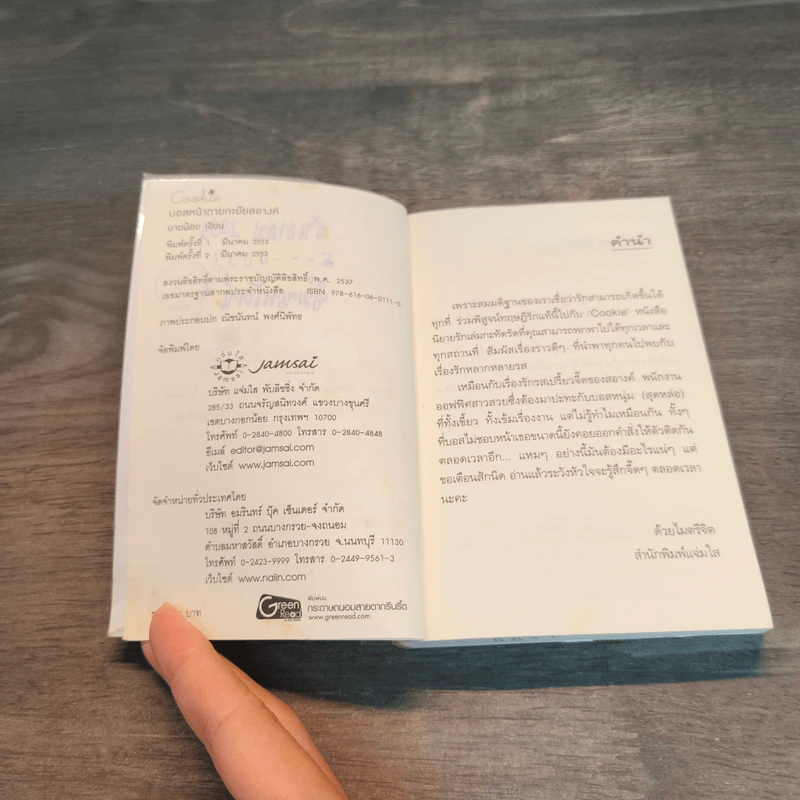 Cookie
บอสหน้าตายกะยัยสอางค์
นายน้อย เขียน
พิมพ์ครั้งที่ 1 มีนาคม 2553
พิมพ์ครั้งที่ 2 มีนาคม 2553
สงวนลิขสิทธิ์ตามพระราชบัญญัติลิขสิทธิ์ พ.ศ. 2537
เลขมาตรฐานสากลประจำหนังสือ ISBN 978-616-06-0111-0
ภาพประกอบปก ณิชนันทน์ พงศ์นิพัทธ
จัดพิมพ์โดย
Jamsai
บริษัท แจ่มใส พับลิชชิ่ง จำกัด
285/33 ถนนจรัญสนิทวงศ์ แขวงบางขุนศรี
เขตบางกอกน้อย กรุงเทพฯ 10700
โทรศัพท์ 0-2840-4800 โทรสาร 0-2840-4848
อีเมล์ editor@jamsai.com
เว็บไซต์ www.jamsai.com
จัดจำหน่ายทั่วประเทศโดย
บริษัท อมรินทร์ บุ๊ค เซ็นเตอร์ จำกัด
108 หมู่ที่ 2 ถนนบางกรวย-จงถนอม
ตำบลมหาสวัสดิ์ อำเภอบางกรวย จ.นนทบุรี 11130
โทรศัพท์ 0-2423-9999 โทรสาร 0-2449-9561-3
เว็บไซต์ www.naiin.com
บาท
Green Read
พิมพ์บน
กระดาษถนอมสายตากรีนรี้ด
www.greenread.com
คำนำ
เพราะสมมติฐานของเราเชื่อว่ารักสามารถเกิดขึ้นได้
ทุกที่ ร่วมพิสูจน์ทฤษฎีรักแท้นี้ไปกับ 'Cookie' หนังสือ
นิยายรักเล่มกะทัดรัดที่คุณสามารถพกพาไปได้ทุกเวลาและ
ทุกสถานที่ สัมผัสเรื่องราวดีๆ ที่นำพาทุกคนไปพบกับ
เรื่องรักหลากหลายรส
เหมือนกับเรื่องรักรสเปรี้ยวจี๊ดของสอางค์ พนักงาน
ออฟฟิศสาวสวยซึ่งต้องมาปะทะกับบอสหนุ่ม (สุดหล่อ)
ที่ทั้งเขี้ยว ทั้งเข้มเรื่องงาน แต่ไม่รู้ทำไมเหมือนกัน ทั้งๆ
ที่บอสไม่ชอบหน้าเธอขนาดนี้ยังคอยออกคำสั่งให้ตัวติดกัน
ตลอดเวลาอีก... แหมๆ อย่างนี้มันต้องมีอะไรแน่ๆ แต่
ขอเตือนสักนิด อ่านแล้วระวังหัวใจจะรู้สึกจี๊ดๆ ตลอดเวลา
นะคะ
ด้วยไมตรีจิต
สำนักพิมพ์แจ่มใส